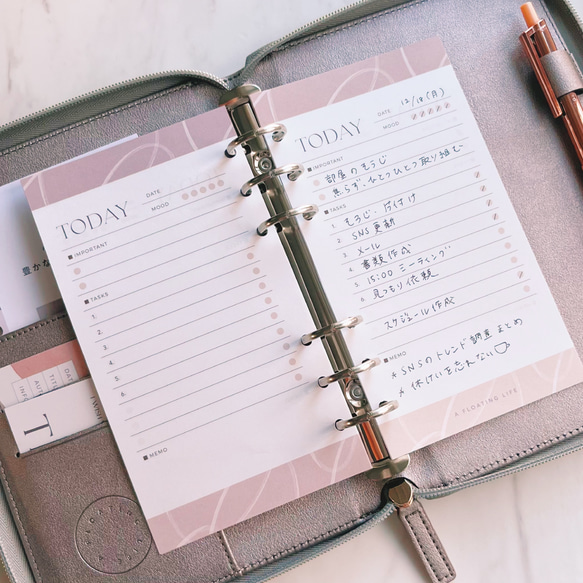 豊かな
TODAY
DATE
MOOD
IMPORTANT
TASKS
1.
2.
3.
4.
5.
6.
MEMO
TODAY
DATE 12/18(月)
MOOD
IMPORTANT
部屋のそうじ
焦らず、ひとつひとつ取り組む
TASKS
1. そうじ・片付け
2. SNS更新
3. メール
4. 書類作成
5. 15:00 ミーティング
6. 見つもり依頼
スケジュール作成
MEMO
* SNSのトレンド調査まとめ
* 休けいを忘れない
A FLOATING LIFE
T